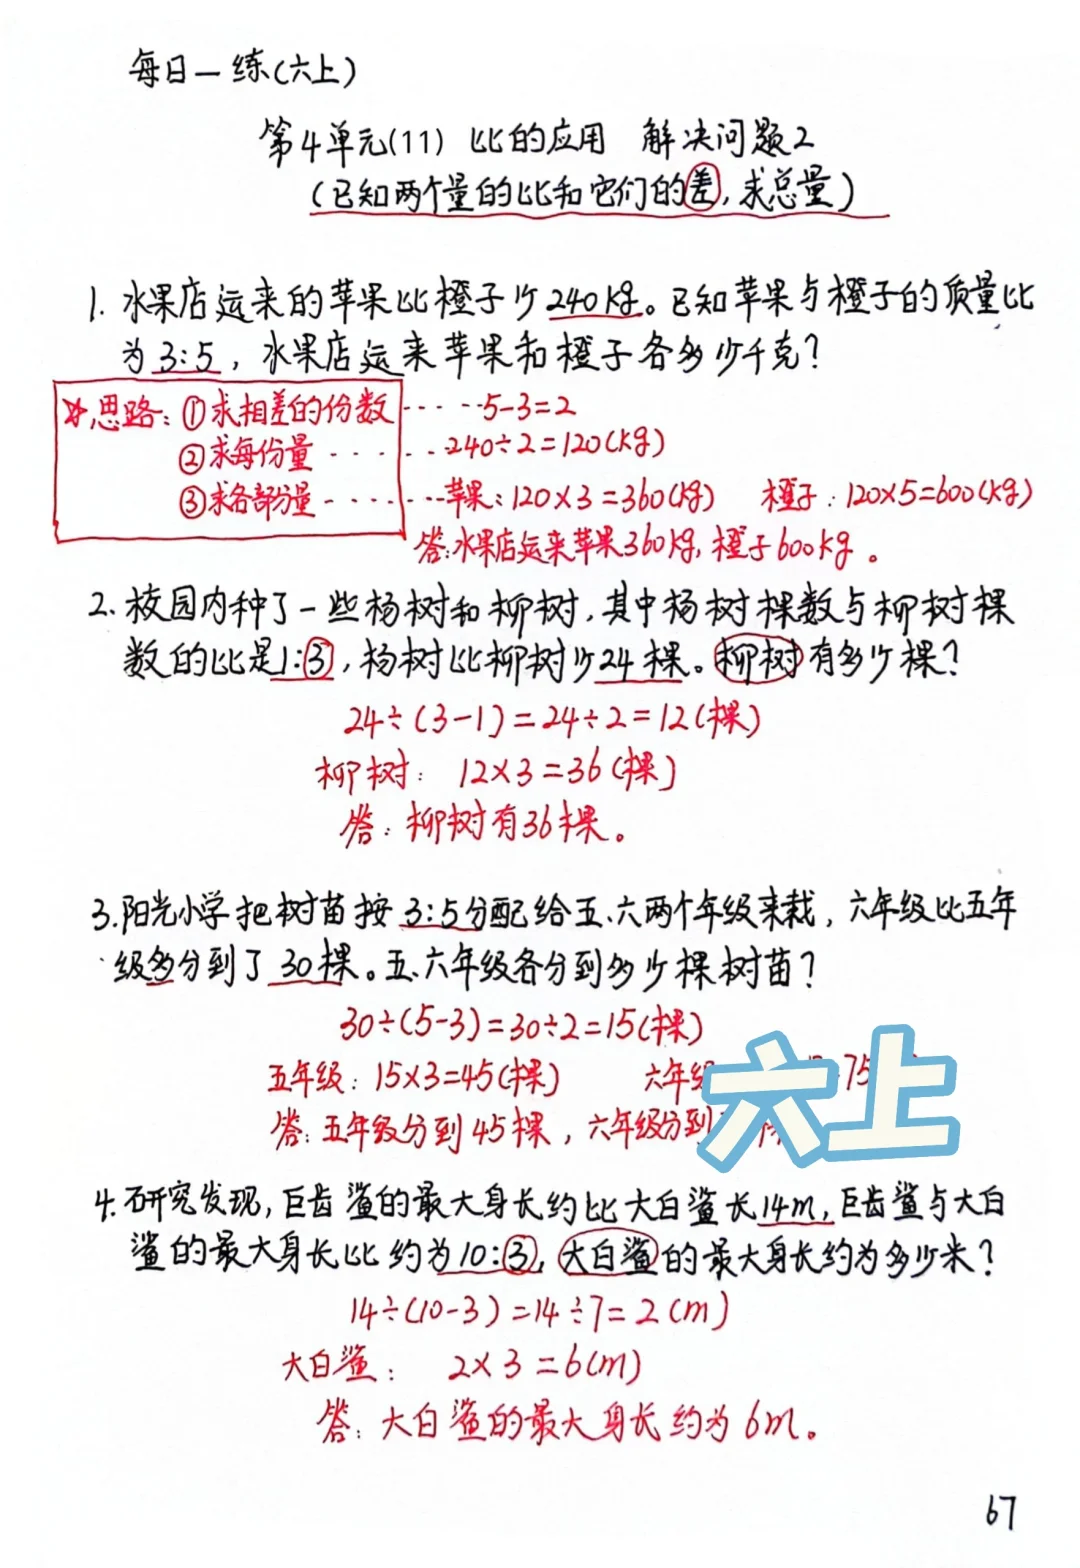 每日一练(六上)
第4单元(11) 比的应用 解决问题2
(已知两个量的比和它们的差,求总量)
1. 水果店运来的苹果比橙子少240kg。已知苹果与橙子的质量比
为3:5,水果店运来苹果和橙子各多少千克?
☆思路:①求相差的份数 ······5-3=2
②求每份量 ······240÷2=120(kg)
③求各部分量 ······苹果:120×3=360(kg) 橙子:120×5=600(kg)
答:水果店运来苹果360kg,橙子600kg。
2. 校园内种了一些杨树和柳树,其中杨树棵数与柳树棵
数的比是1:3,杨树比柳树少24棵。柳树有多少棵?
24÷(3-1)=24÷2=12(棵)
柳树: 12×3=36(棵)
答:柳树有36棵。
3.阳光小学把树苗按3:5分配给五、六两个年级来栽,六年级比五年
级多分到了30棵。五、六年级各分到多少棵树苗?
30÷(5-3)=30÷2=15(棵)
五年级:15×3=45(棵) 六年级 75
答:五年级分到45棵,六年级分到
六上
4.研究发现,巨齿鲨的最大身长约比大白鲨长14m,巨齿鲨与大白
鲨的最大身长比约为10:3,大白鲨的最大身长约为多少米?
14÷(10-3)=14÷7=2(m)
大白鲨: 2×3=6(m)
答:大白鲨的最大身长约为6m。
67